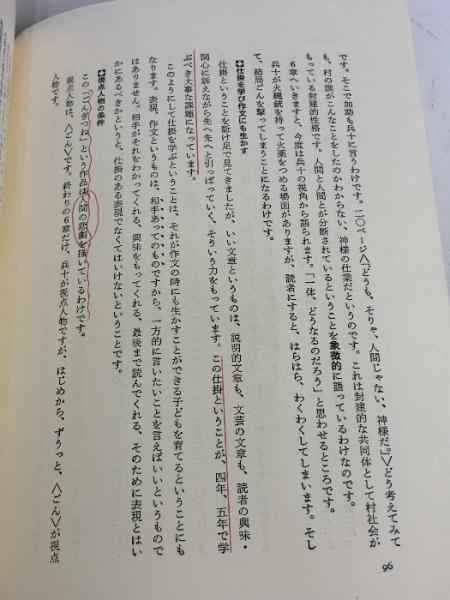 です。そこで加助も兵十に言うわけです。二〇ページ〈「どうも、そりゃ、人間じゃない、神様だ。」〉どう考えてみて
も、村の誰がこんなことをしたのかわからない、神様の仕業だというのです。これは封建的な共同体として村社会が
もっている封建的性格です。人間と人間とが分断されているということを象徴的に語っているわけなのです。
6章へいきますと、今度は兵十の視角から語られます。「一体、どうなるのだろう」と思わせるところです。
兵十が火縄銃を持って火薬をつめる場面がありますが、読者にすると、はらはら、わくわくしてしまいます。そし
て、結局ごんを撃ってしまうことになるわけです。
【仕掛を学び作文にも生かす
仕掛ということを駈け足で見てきましたが、いい文章というものは、説明的文章も、文芸の文章も、読者の興味・
関心に訴えながら先へ先へと引っぱっていく、そういう力をもっています。この仕掛ということが、四年、五年で学
ぶべき大事な課題になっています。
このようにして仕掛を学ぶということは、それが作文の時にも生かすことができる子どもを育てるということにも
なります。表現、作文というものは、相手あってのものですから、一方的に言いたいことを言えばいいというもので
はありません。相手がそれをわかってくれる、興味をもってくれる、最後まで読んでくれる、そのために表現とはい
かにあるべきかというと、仕掛のある表現でなくてはいけないということです。
【視点人物の条件
この「ごんぎつね」という作品は人間の悲劇を描いているわけです。
視点人物は、〈ごん〉です。終わりの6章だけ、兵十が視点人物ですが、はじめから、ずうっと、〈ごん〉が視点
人物です。
96